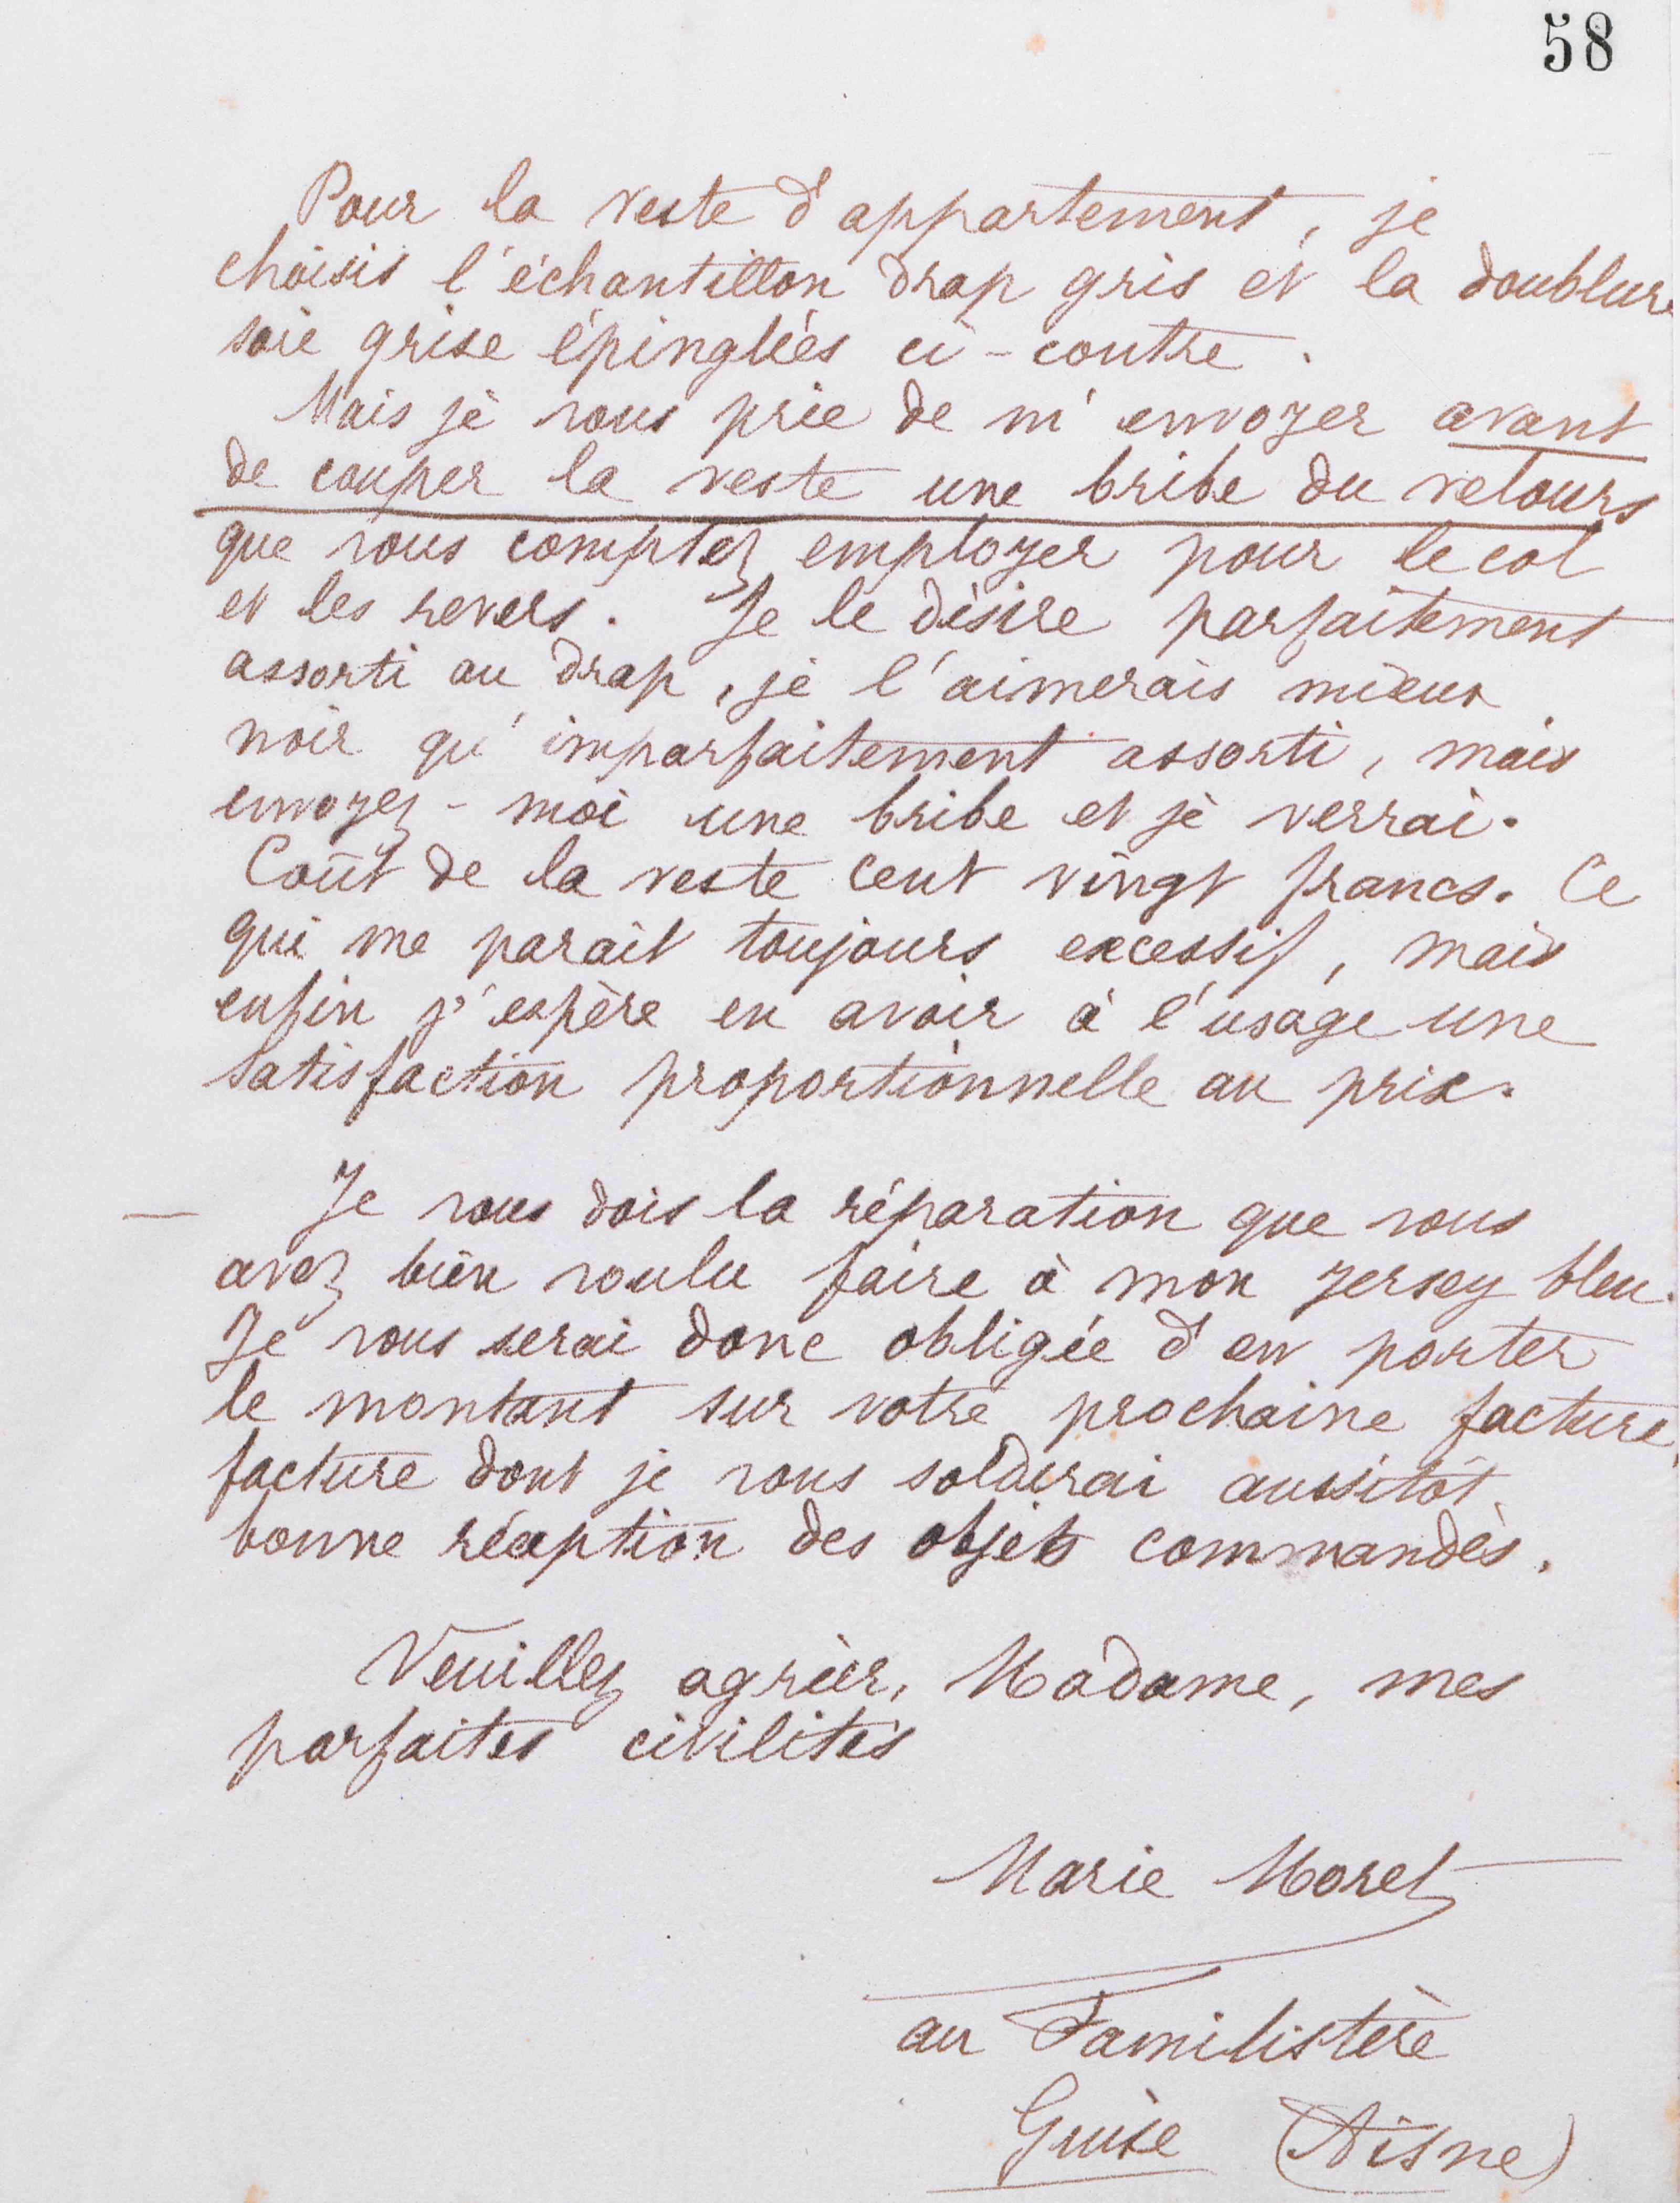 58
Pour la veste d'appartement, je
choisis l'échantillon drap gris et la doublure
soie grise épinglées ci-contre.
Mais je vous prie de m'envoyer avant
de couper la veste une bribe du velours
que vous comptez employer pour le col
et les revers. Je le désire parfaitement
assorti au drap, je l'aimerais mieux
noir qu'imparfaitement assorti, mais
envoyez-moi une bribe et je verrai.
Coût de la veste cent vingt francs. Ce
qui me parait toujours excessif, mais
enfin j'espère en avoir à l'usage une
satisfaction proportionnelle au prix.
— Je vous dois la réparation que vous
avez bien voulu faire à mon jersey bleu.
Je vous serai donc obligée d'en porter
le montant sur votre prochaine facture,
facture dont je vous solderai aussitôt
bonne réception des objets commandés.
Veuillez agréer, Madame, mes
parfaites civilités
Marie Moret
au Familistère
Guise (Aisne)